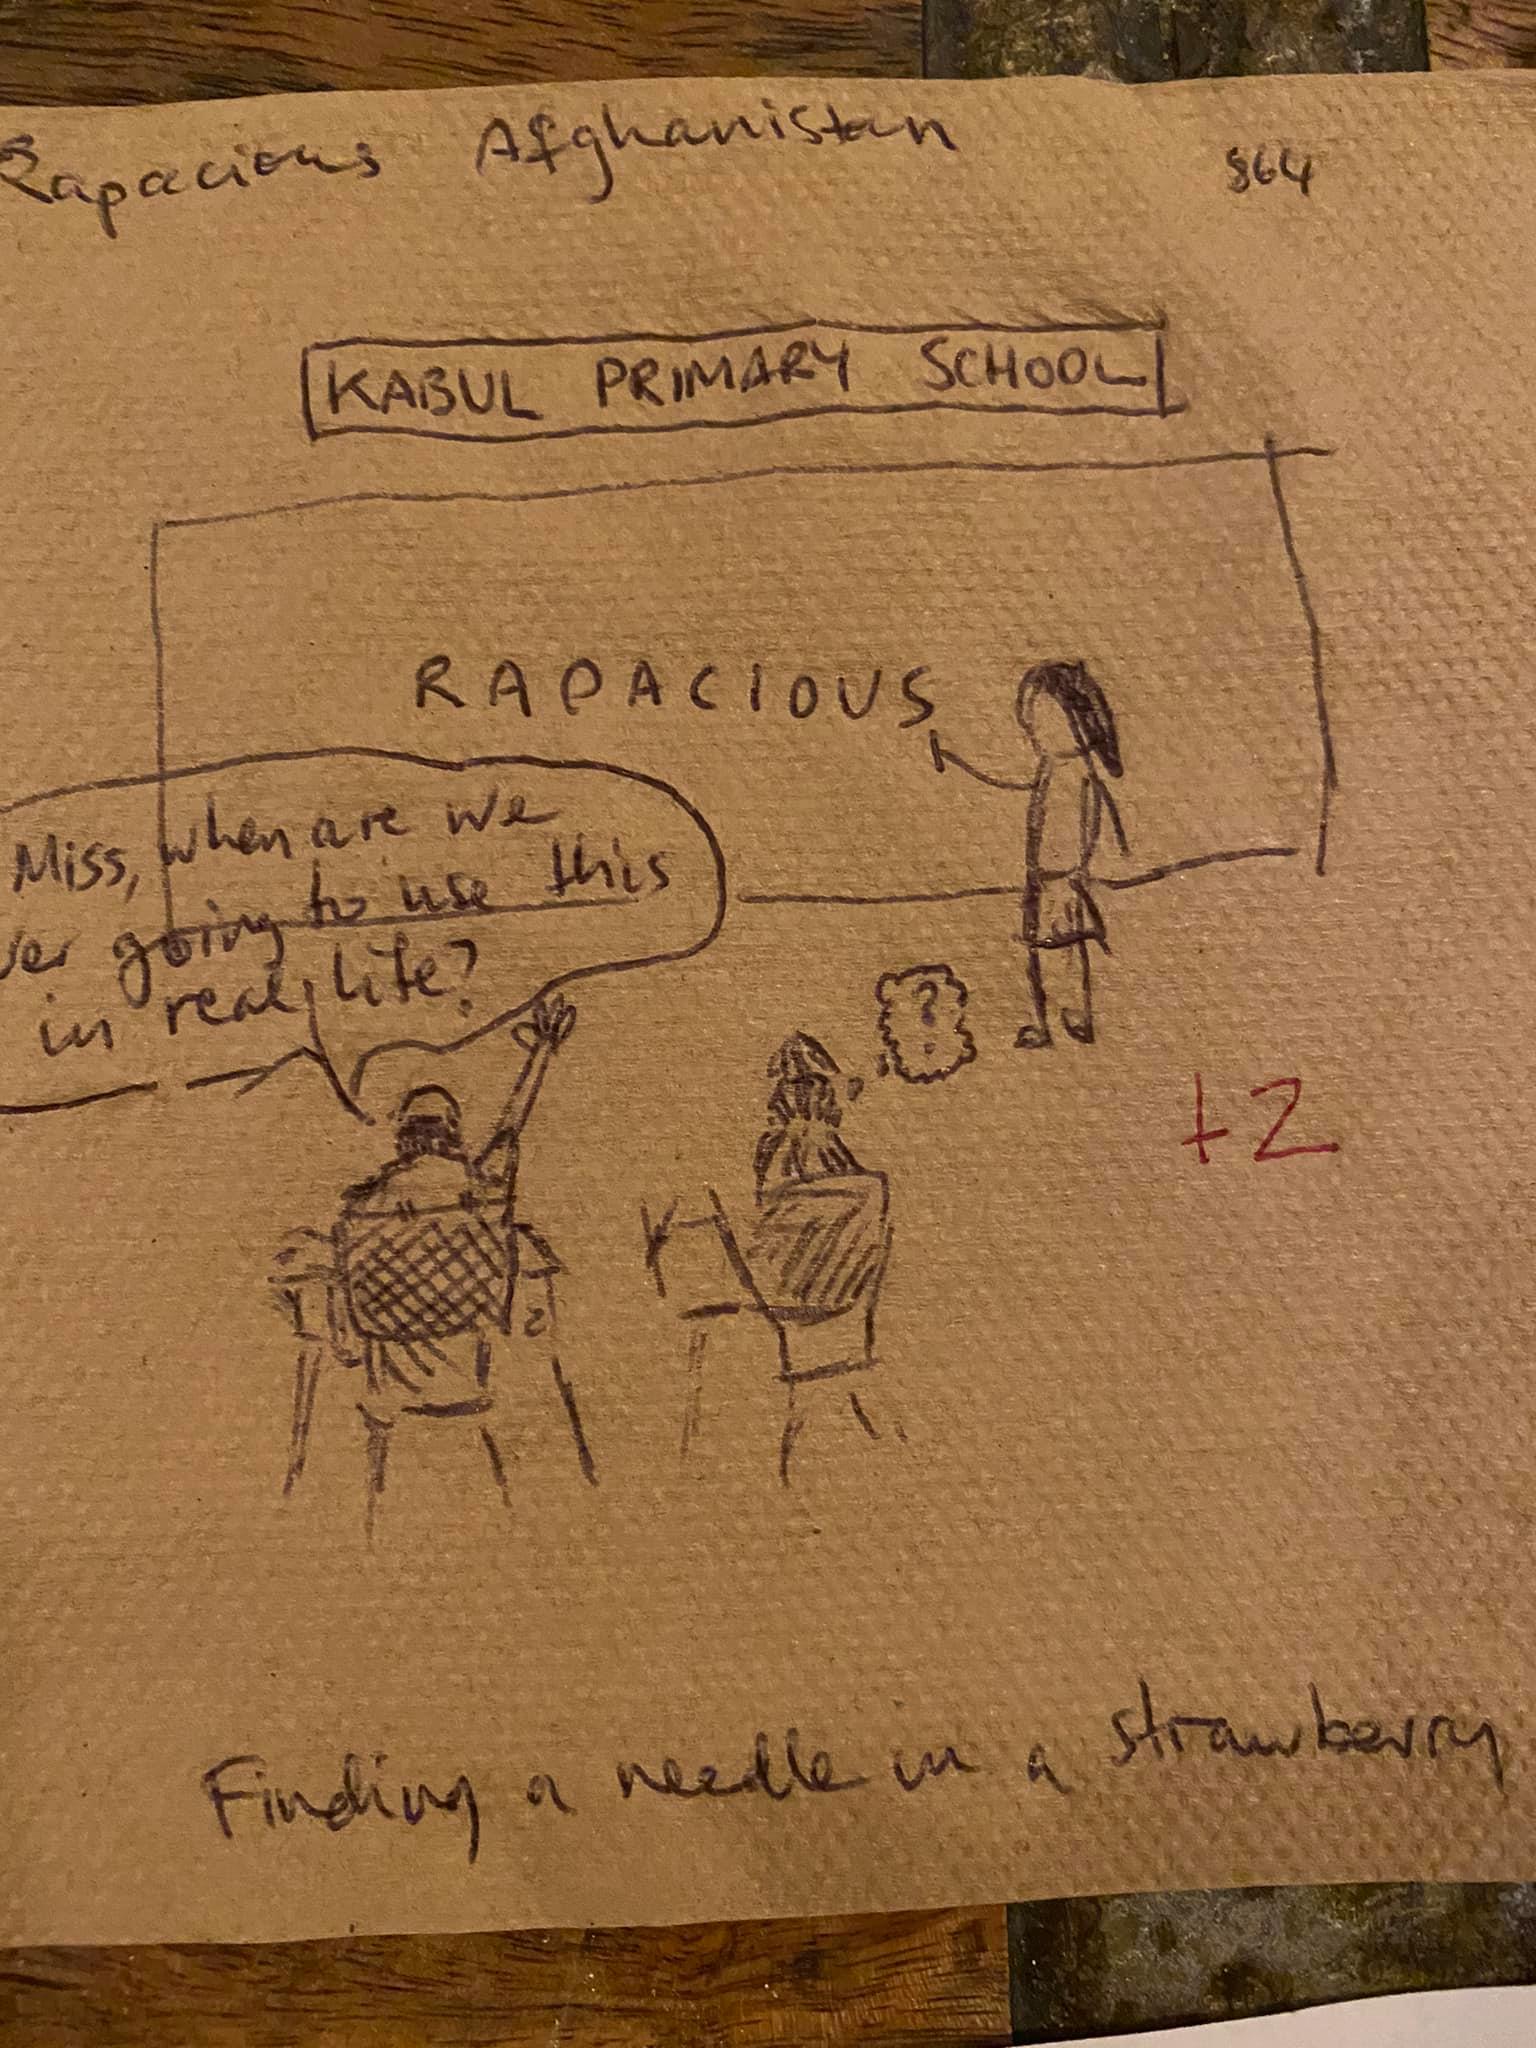 Rapacious Afghanistan
§64
KABUL PRIMARY SCHOOL
RAPACIOUS
Miss, when are we
ver going to use this
in real life?
?
+2
Finding a needle in a strawberry